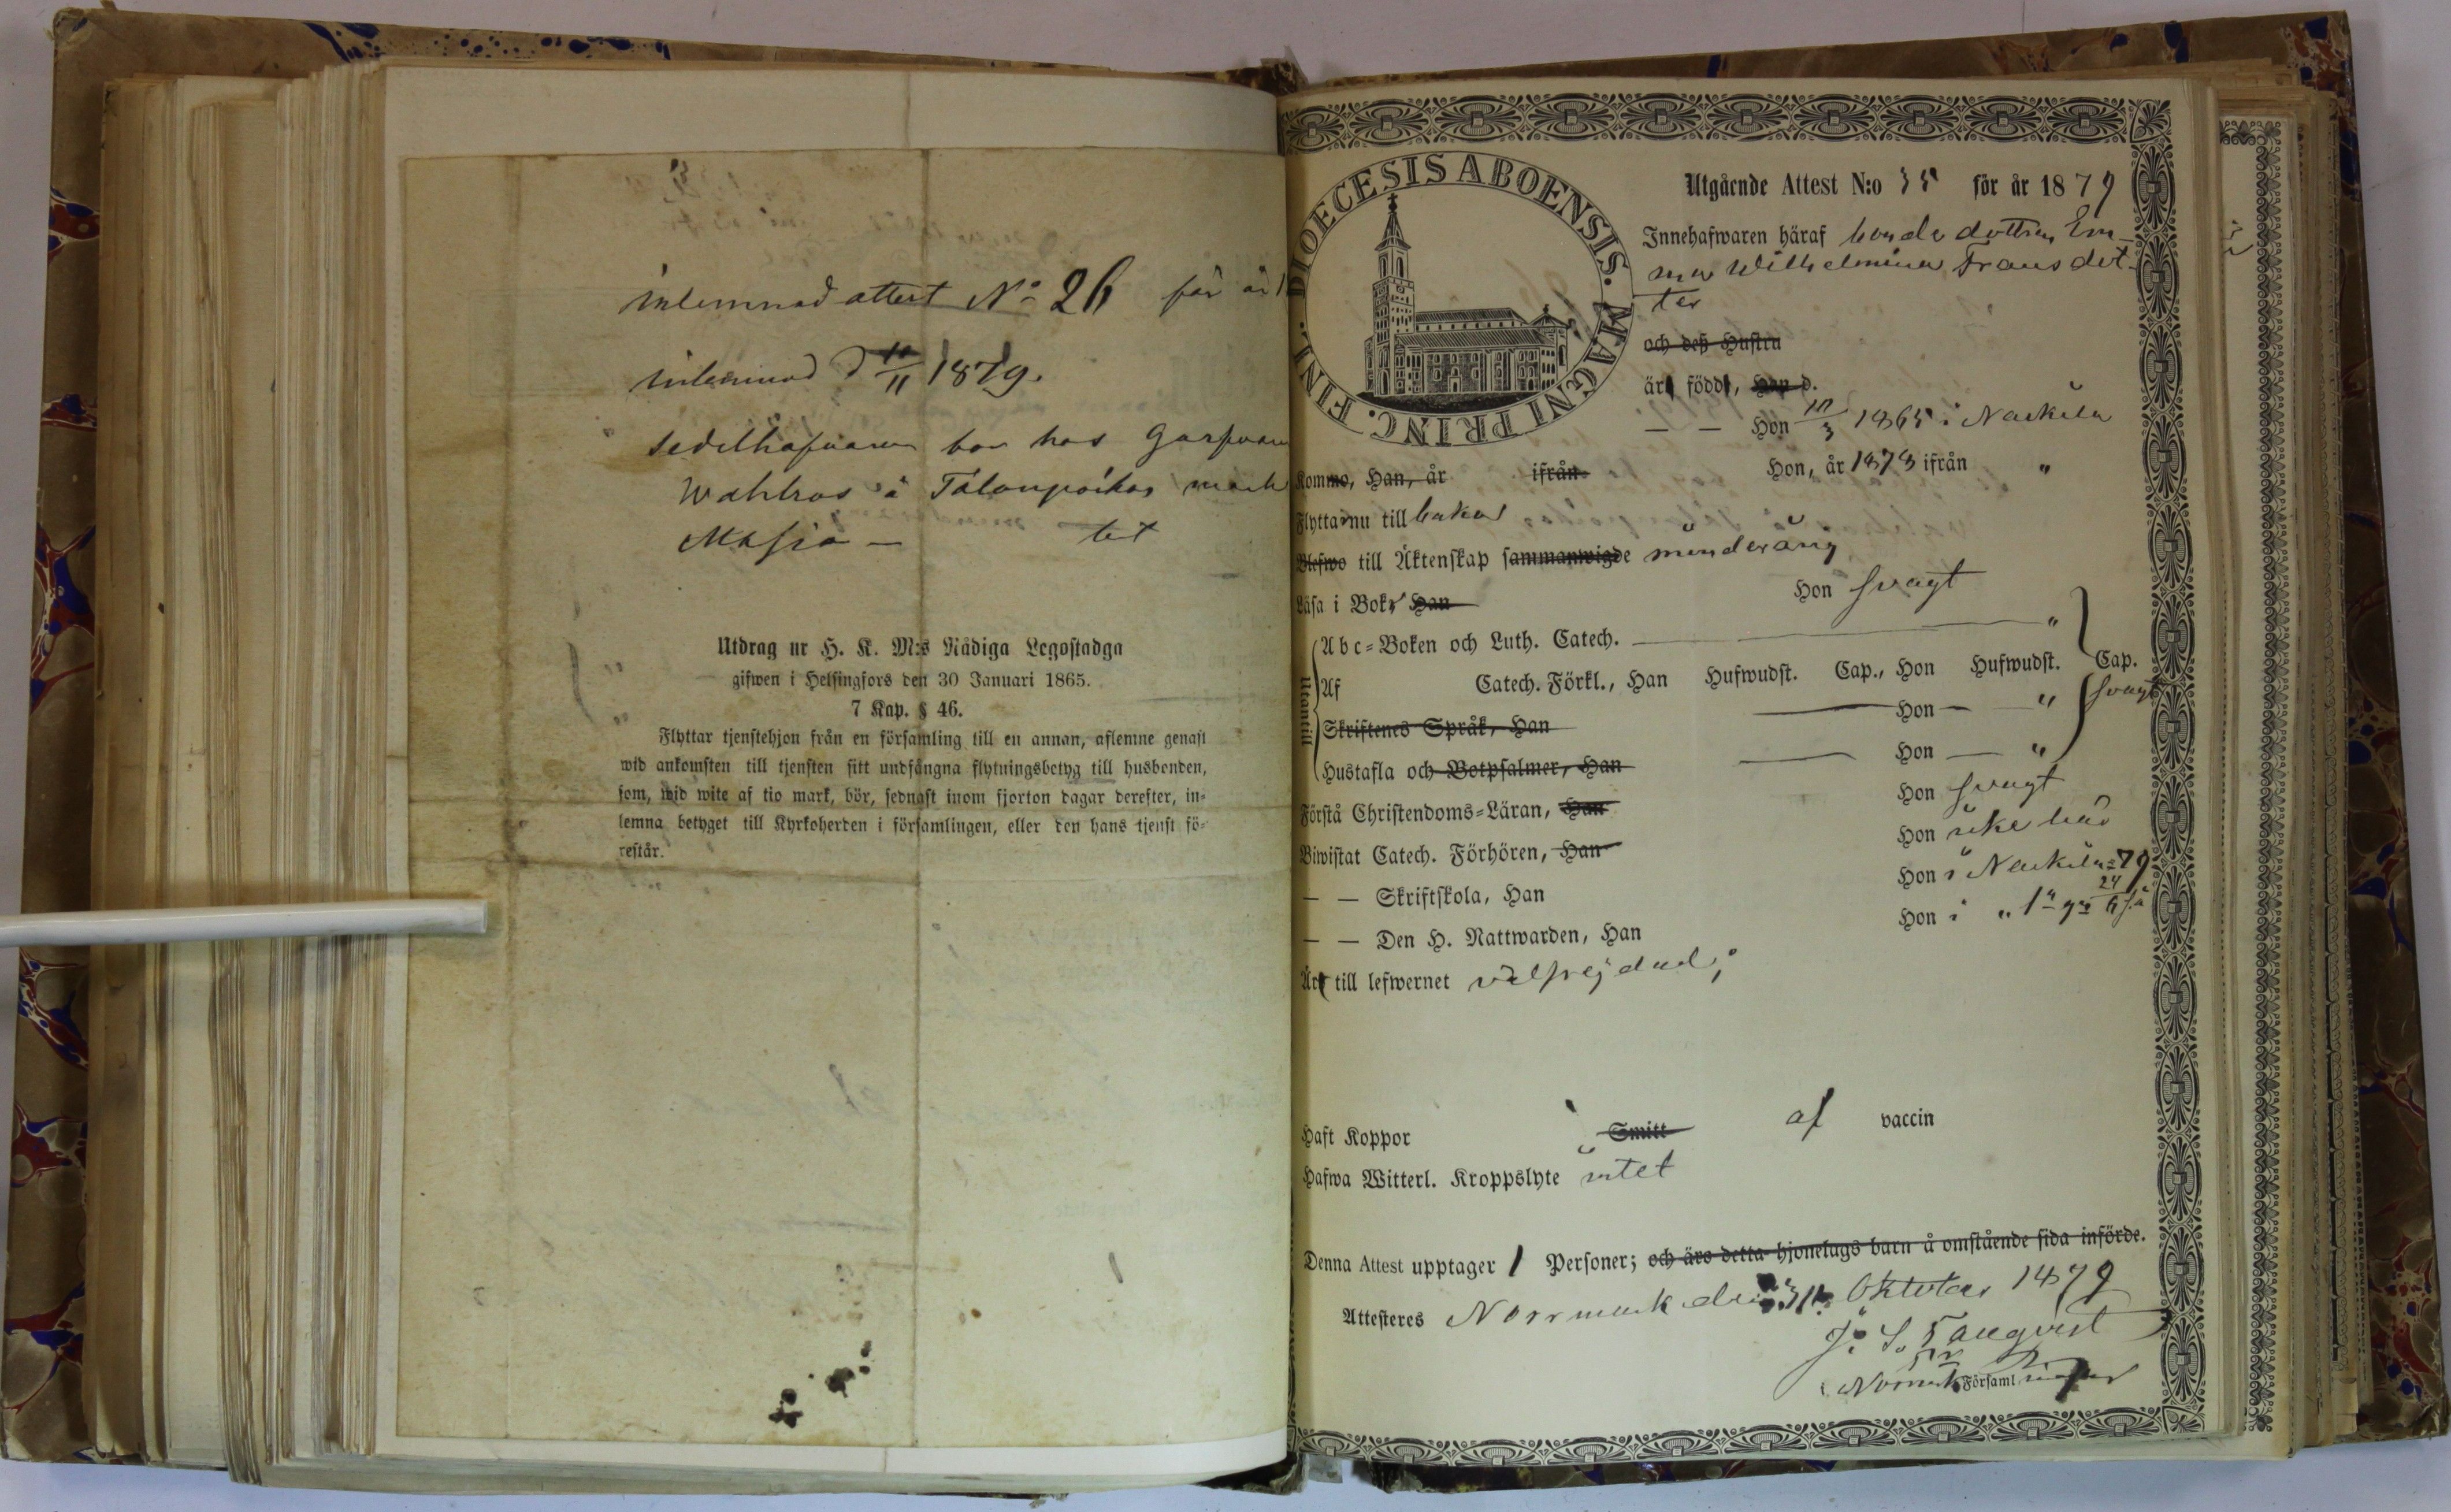 inlemnad attest No 26 för år 1
inlemnad d 10/11 1879.
Sedelhafvaren bor hos Garfvaren
Wahlroos å Talonpoikas mark
tet
Utdrag ur H. K. M:s Nådiga Legostadga
gifwen i Helsingfors den 30 Januari 1865.
7 Kap. § 46.
Flyttar tjenstehjon från en församling till en annan, aflemne genast
wid ankomsten till tjensten sitt undfångna flyttningsbetyg till husbonden,
som, wid wite af tio mark, bör, sednast inom fjorton dagar derefter, in-
lemna betyget till Kyrkoherden i församlingen, eller den hans tjenst fö-
restår.
DIOECESIS ABOENSIS. MAGNI PRINC. FINL.
Utgående Attest N:o 35 för år 1879
Innehafwaren häraf bondedottren Em-
ma Wilhelmina Fransdot-
ter
och deß Hustru
äro födde, Han d.
— — Hon 10/3 1865 i Nackila
Kommo, Han, år ifrån Hon, år 1878 ifrån "
Flytta nu till bakas
Blefwo till Äktenskap sammanwigde minderårig
Läsa i Bok, Han Hon svagt
Utantill
Abc-Boken och Luth. Catech. "
Af Catech. Förkl., Han Hufwudst. Cap., Hon Hufwudst. Cap.
Skriftenes Språk, Han Hon — " svagt
Hustafla och Botpsalmer, Han Hon — "
Förstå Christendoms-Läran, Han Hon svagt
Biwistat Catech. Förhören, Han Hon icke här
— — Skriftskola, Han Hon i Nackila 79
— — Den H. Nattwarden, Han Hon i " 24/6
Äro till lefwernet välfrejdad;
Haft Koppor Smitt af vaccin
Hafwa Witterl. Kroppslyte intet
Denna Attest upptager 1 Personer; och äro detta hjonelags barn å omstående sida införde.
Attesteres Norrmark den 31 Oktober 1879
J. S.
Norrmark Församl